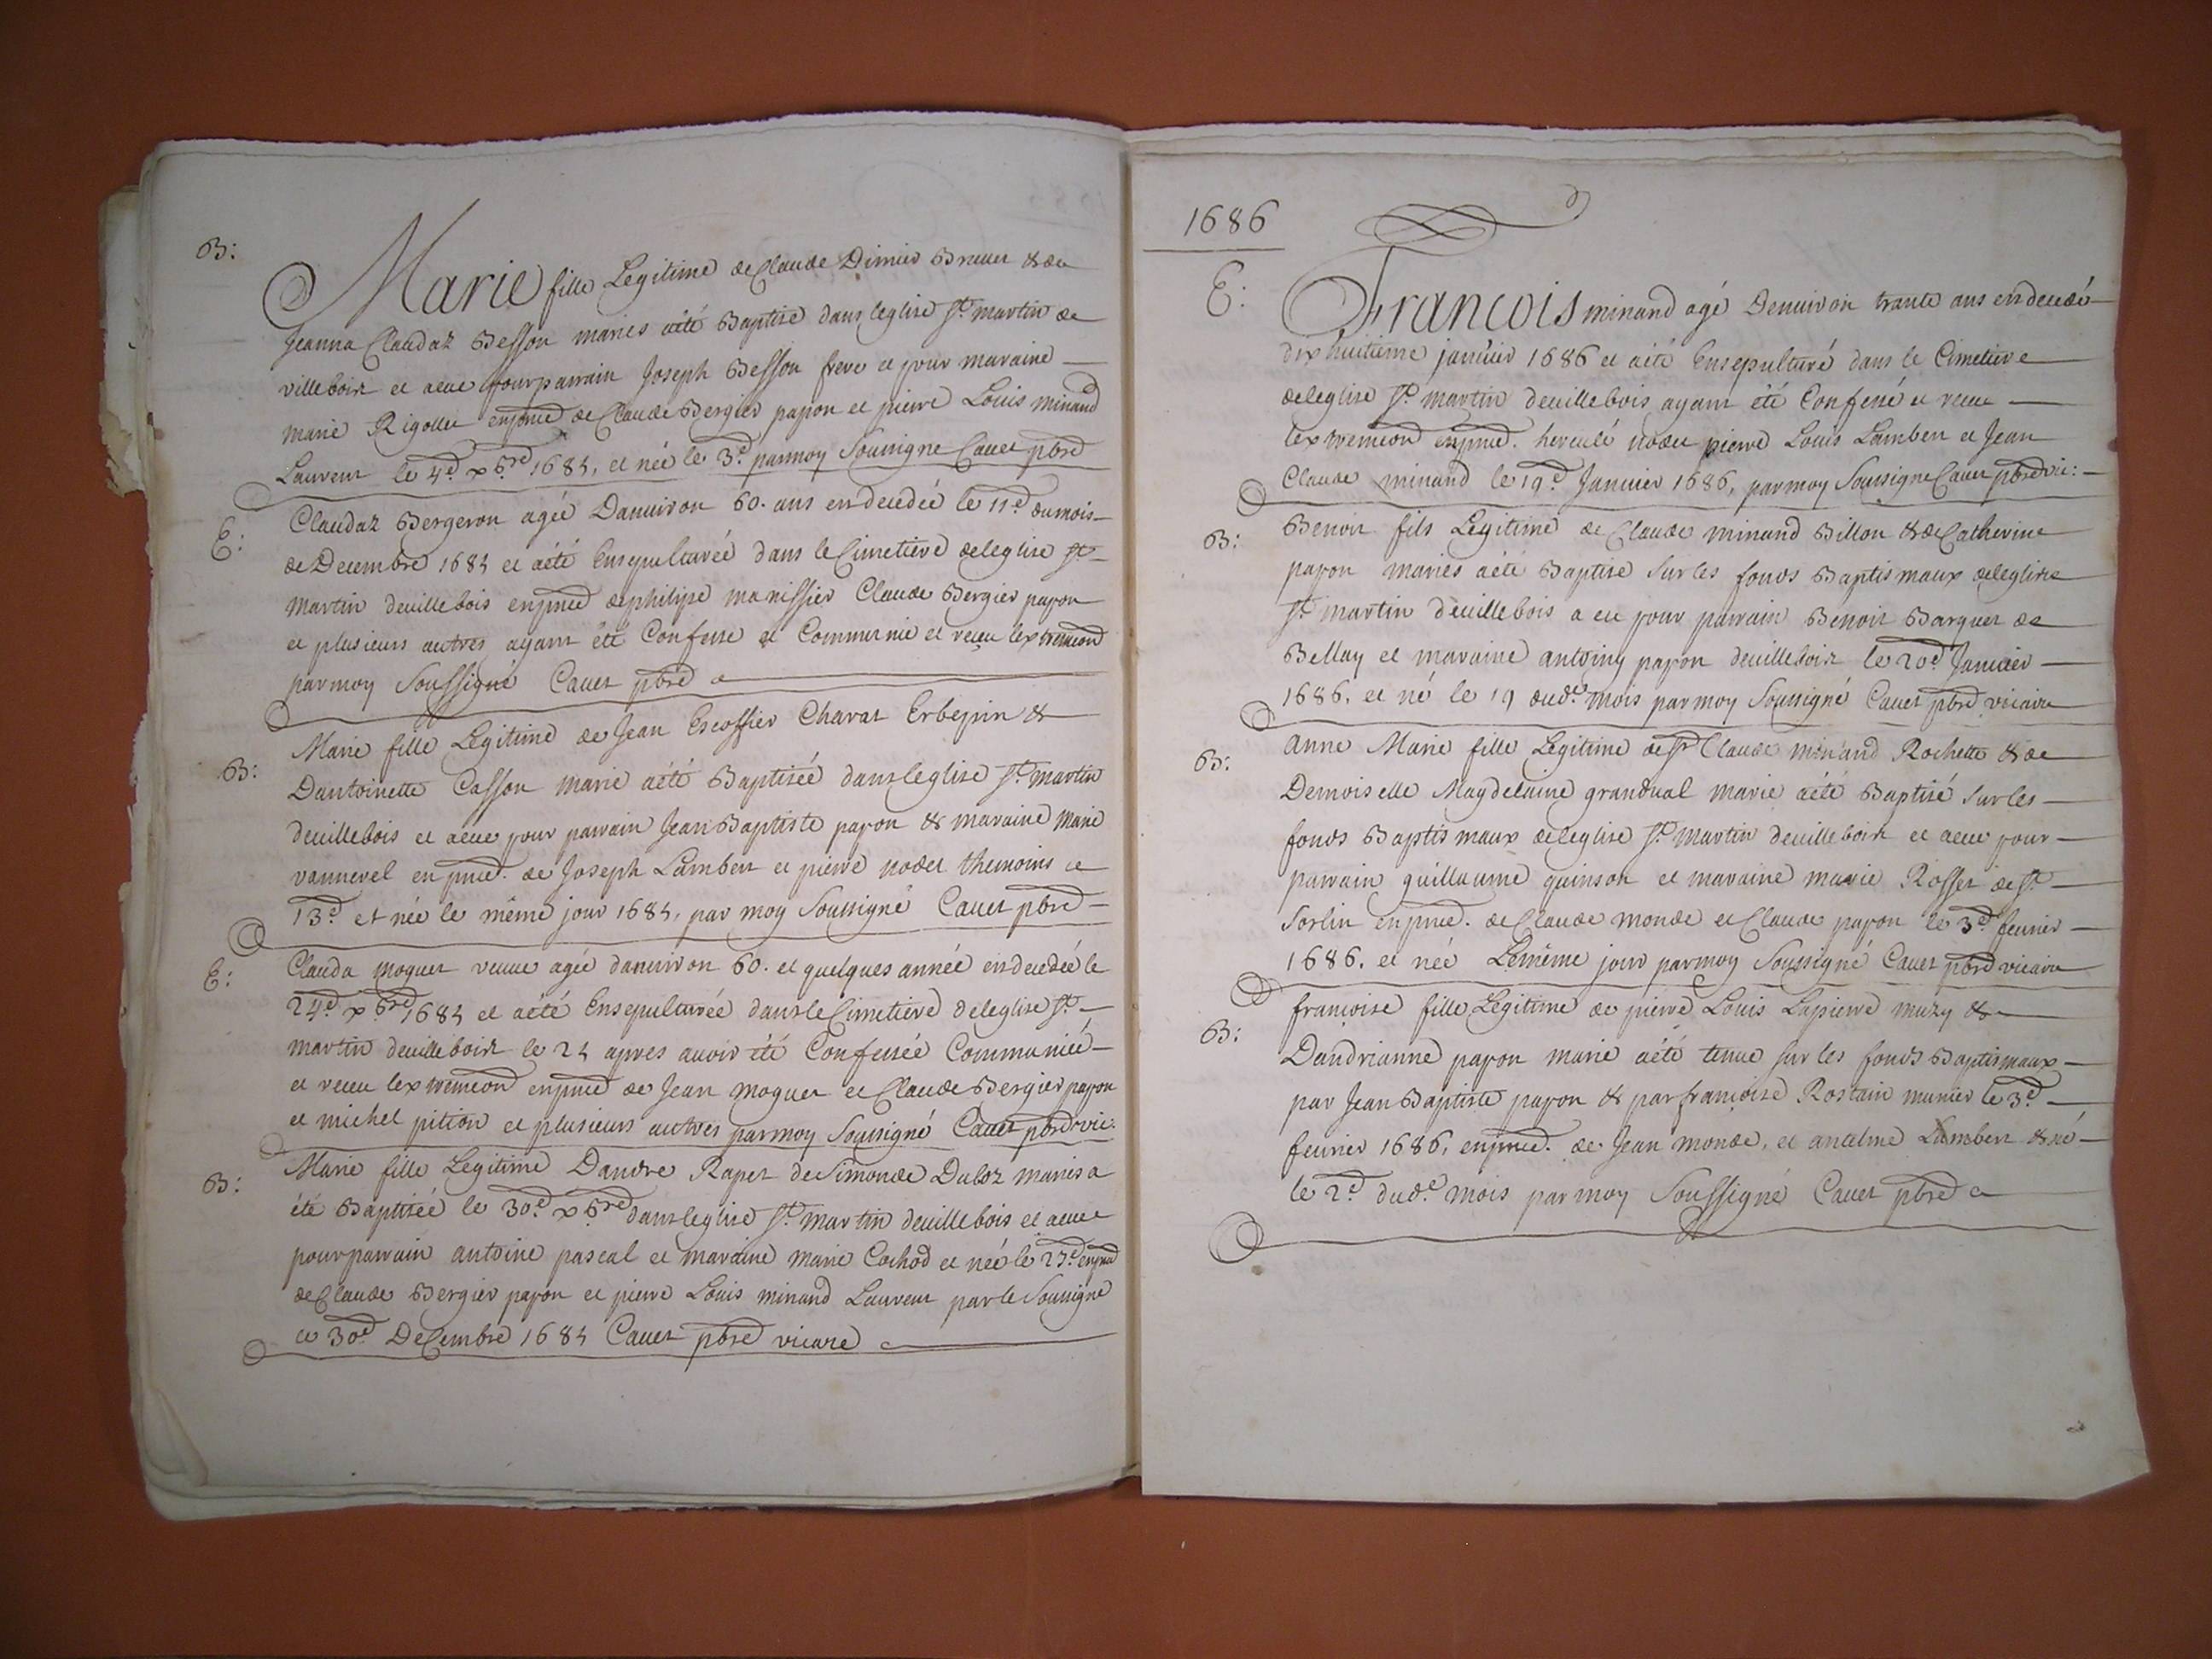 B:
Marie fille Legitime de Claude Dimier Bruuer & de
Jeanna Claudaz Besson mariés aété Baptisé dans leglise St. martin de
villeboix et aeue pour parrain Joseph Besson frere et pour maraine
marie Rigollet enpnce de Claude Bergier papon et pierre Louis minand
Laurent le 4e xbre 1685, et née le 3e parmoy Soussigne Cauet pbre
E:
Claudaz Bergeron agée Danuiron 60. ans en decedée le 11e dumois
de Decembre 1685 et aété Ensepulturée dans le Cimetiere deleglise St
martin deuillebois enpnce dephilipe manissier Claude Bergier papon
et plusieurs autres ayant été Confesse et Communié et receu lextremeond
parmoy Soussigné Cauet pbre
B:
Marie fille Legitime de Jean Escoffier Charat Erbepin &
Dantoinette Casson marie aété Baptisée dans leglise St. martin
deuillebois et aeue pour parrain Jean Baptiste papon & maraine marie
vannerel en pnce. de Joseph Lambert et pierre nodet themoins ce
13e et née le même jour 1685, par moy Soussigné Cauet pbre
E:
Clauda moguet veuue agée danuiron 60. et quelques année en decedée le
24e xbre 1685 et aété Ensepulturée dans le Cimetiere deleglise St
martin deuilleboix le 25 apres auoir été Confessée Communiée
et receu lextremeond enpnce de Jean moguet et Claude Bergier papon
et michel pition et plusieurs autres parmoy Soussigné Cauet pbre vic:
B:
Marie fille Legitime Dandre Rapet de Simonde Duboz mariés a
été Baptisée le 30e xbre dans leglise St. martin deuillebois et aeue
pour parrain antoine pascal et maraine marie Cochod et née le 25e enpnce
de Claude Bergier papon et pierre Louis minand Laurent par le Soussigné
ce 30e Decembre 1685 Cauet pbre vicaire
1686
E:
Francois minand agé Denuiron trante ans en decedé
dix huitieme januier 1686 et aété Ensepulturé dans le Cimetiere
deleglise St. martin deuillebois ayant été Confessé et receu
lextremeond enpnce. herculé nodet pierre Louis Lambert et Jean
Claude minand le 19e Januier 1686, parmoy Soussigne Cauet pbre vic:
B:
Benoit fils Legitime de Claude minand Billon & de Catherine
papon mariés aété Baptisé Sur les fonds Baptismaux deleglise
St. martin deuillebois a eu pour parrain Benoit Barquet de
Bellay et maraine antoiny papon deuilleboix le 20e Januier
1686. et né le 19 dude. mois parmoy Soussigné Cauet pbre vicaire
B:
Anne Marie fille Legitime de Sr Claude minand Rochette & de
Demoiselle Magdelaine grandual marié aété Baptisé Sur les
fonds Baptismaux deleglise St. martin deuilleboix et aeue pour
parrain guillaume quinson et maraine marie Rosset de St
Sorlin enpnce. de Claude monde et Claude papon le 3e feurier
1686. et née Lemême jour parmoy Soussigné Cauet pbre vicaire
B:
francoise fille Legitime de pierre Louis Lapierre muzy &
Dandrianne papon marié aété tenue sur les fonds Baptismaux
par Jean Baptiste papon & par francoise Rostain munier le 3e
feurier 1686. enpnce. de Jean monde, et anselme Lambert & né
le 2e dude. mois par moy Soussigné Cauet pbre